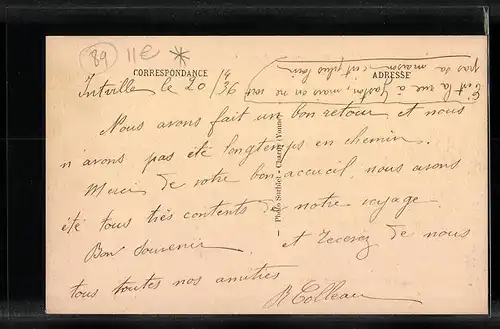 89 11€ *
CORRESPONDANCE
ADRESSE
Intville le 20/4/36
C'est la rue à Gaston, mais on ne voit
pas sa maison c'est plus loin
Nous avons fait un bon retour et nous
n'avons pas été longtemps en chemin.
Merci de votre bon accueil, nous avons
été tous très contents de notre voyage
Bon souvenir et recevez de nous
tous toutes nos amitiés
R Colleau
— Photo Charny (Yonne)